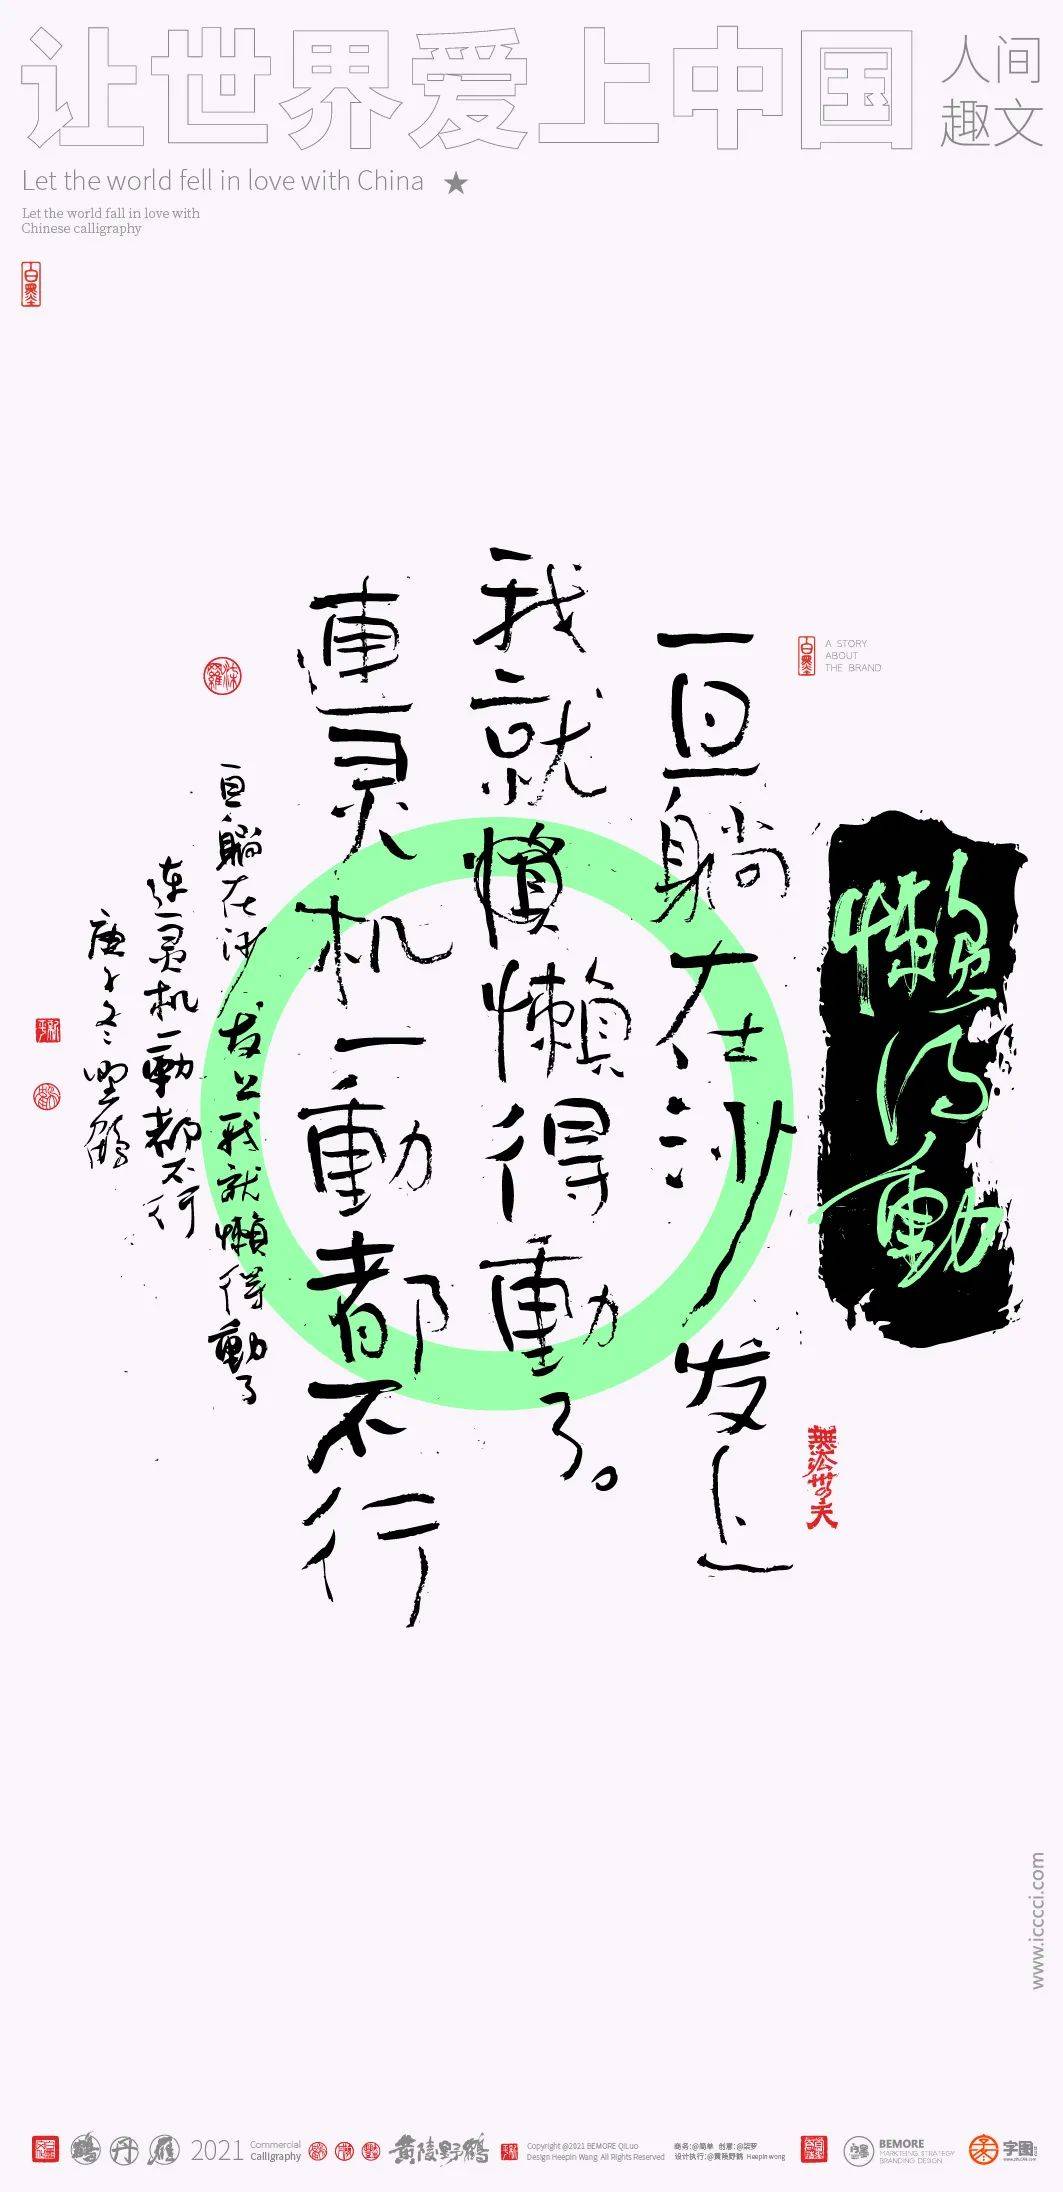 让世界爱上中国
人间
趣文
Let the world fell in love with China ★
Let the world fall in love with
Chinese calligraphy
白墨堂
白墨堂
A STORY
ABOUT
THE BRAND
懒得動
一旦躺在沙发上
我就懒懒得動了。
連灵机一動都不行
一旦躺在沙发上我就懒得動了
连灵机一動都不行
庚子冬野鹤
www.icccci.com
鶴
丹
雁
2021
Commercial
Calligraphy
黄陵野鹤
Copyright @2021 BEMORE QiLuo
Design Heepin Wang All Rights Reserved
商务:@简单 创意:@柒罗
设计执行:@黄陵野鹤 Heepin wong
BEMORE
MARKTEING STRATEGY
BRANDING DESIGN
字图